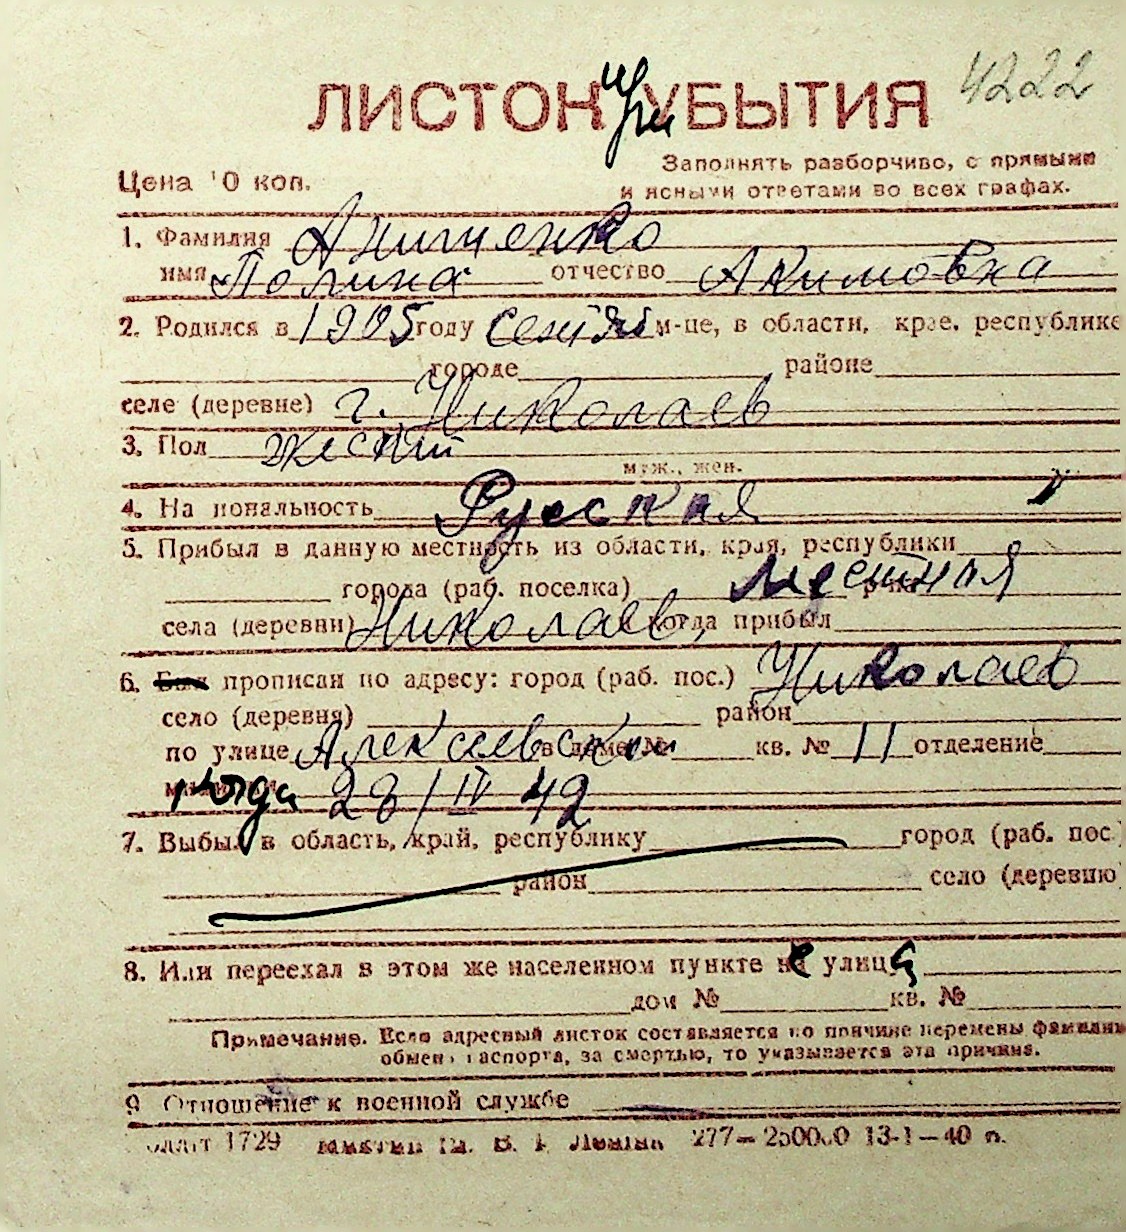 4222
ЛИСТОК при УБЫТИЯ
Цена 10 коп.
Заполнять разборчиво, с прямыми
и ясными ответами во всех графах.
1. Фамилия Анищенко
имя Полина отчество Акимовна
2. Родился в 1905 году м-це, в области, крае, республике
городе районе
селе (деревне) г. Николаев
3. Пол жеский
муж., жен.
4. Национальность Руская
5. Прибыл в данную местность из области, края, республики
города (раб. поселка) местная
села (деревни) Николаев, когда прибыл
6. Был прописан по адресу: город (раб. пос.) Николаев
село (деревня) район
по улице Алексеевской в доме № кв. № 11 отделение
милиции когда 28/IV 42
7. Выбыл в область, край, республику город (раб. пос.
район село (деревню
8. Или переехал в этом же населенном пункте не улица
дом № кв. №
Примечание. Если адресный листок составляется по причине перемены фамилии
обмена паспорта, за смертью, то указывается эта причина.
9 Отношение к военной службе
1729 277—250000 13-1—40 п.